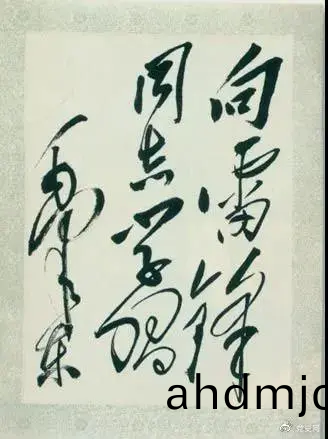 向雷锋
同志学习
毛泽东
ahdmjc
党史网